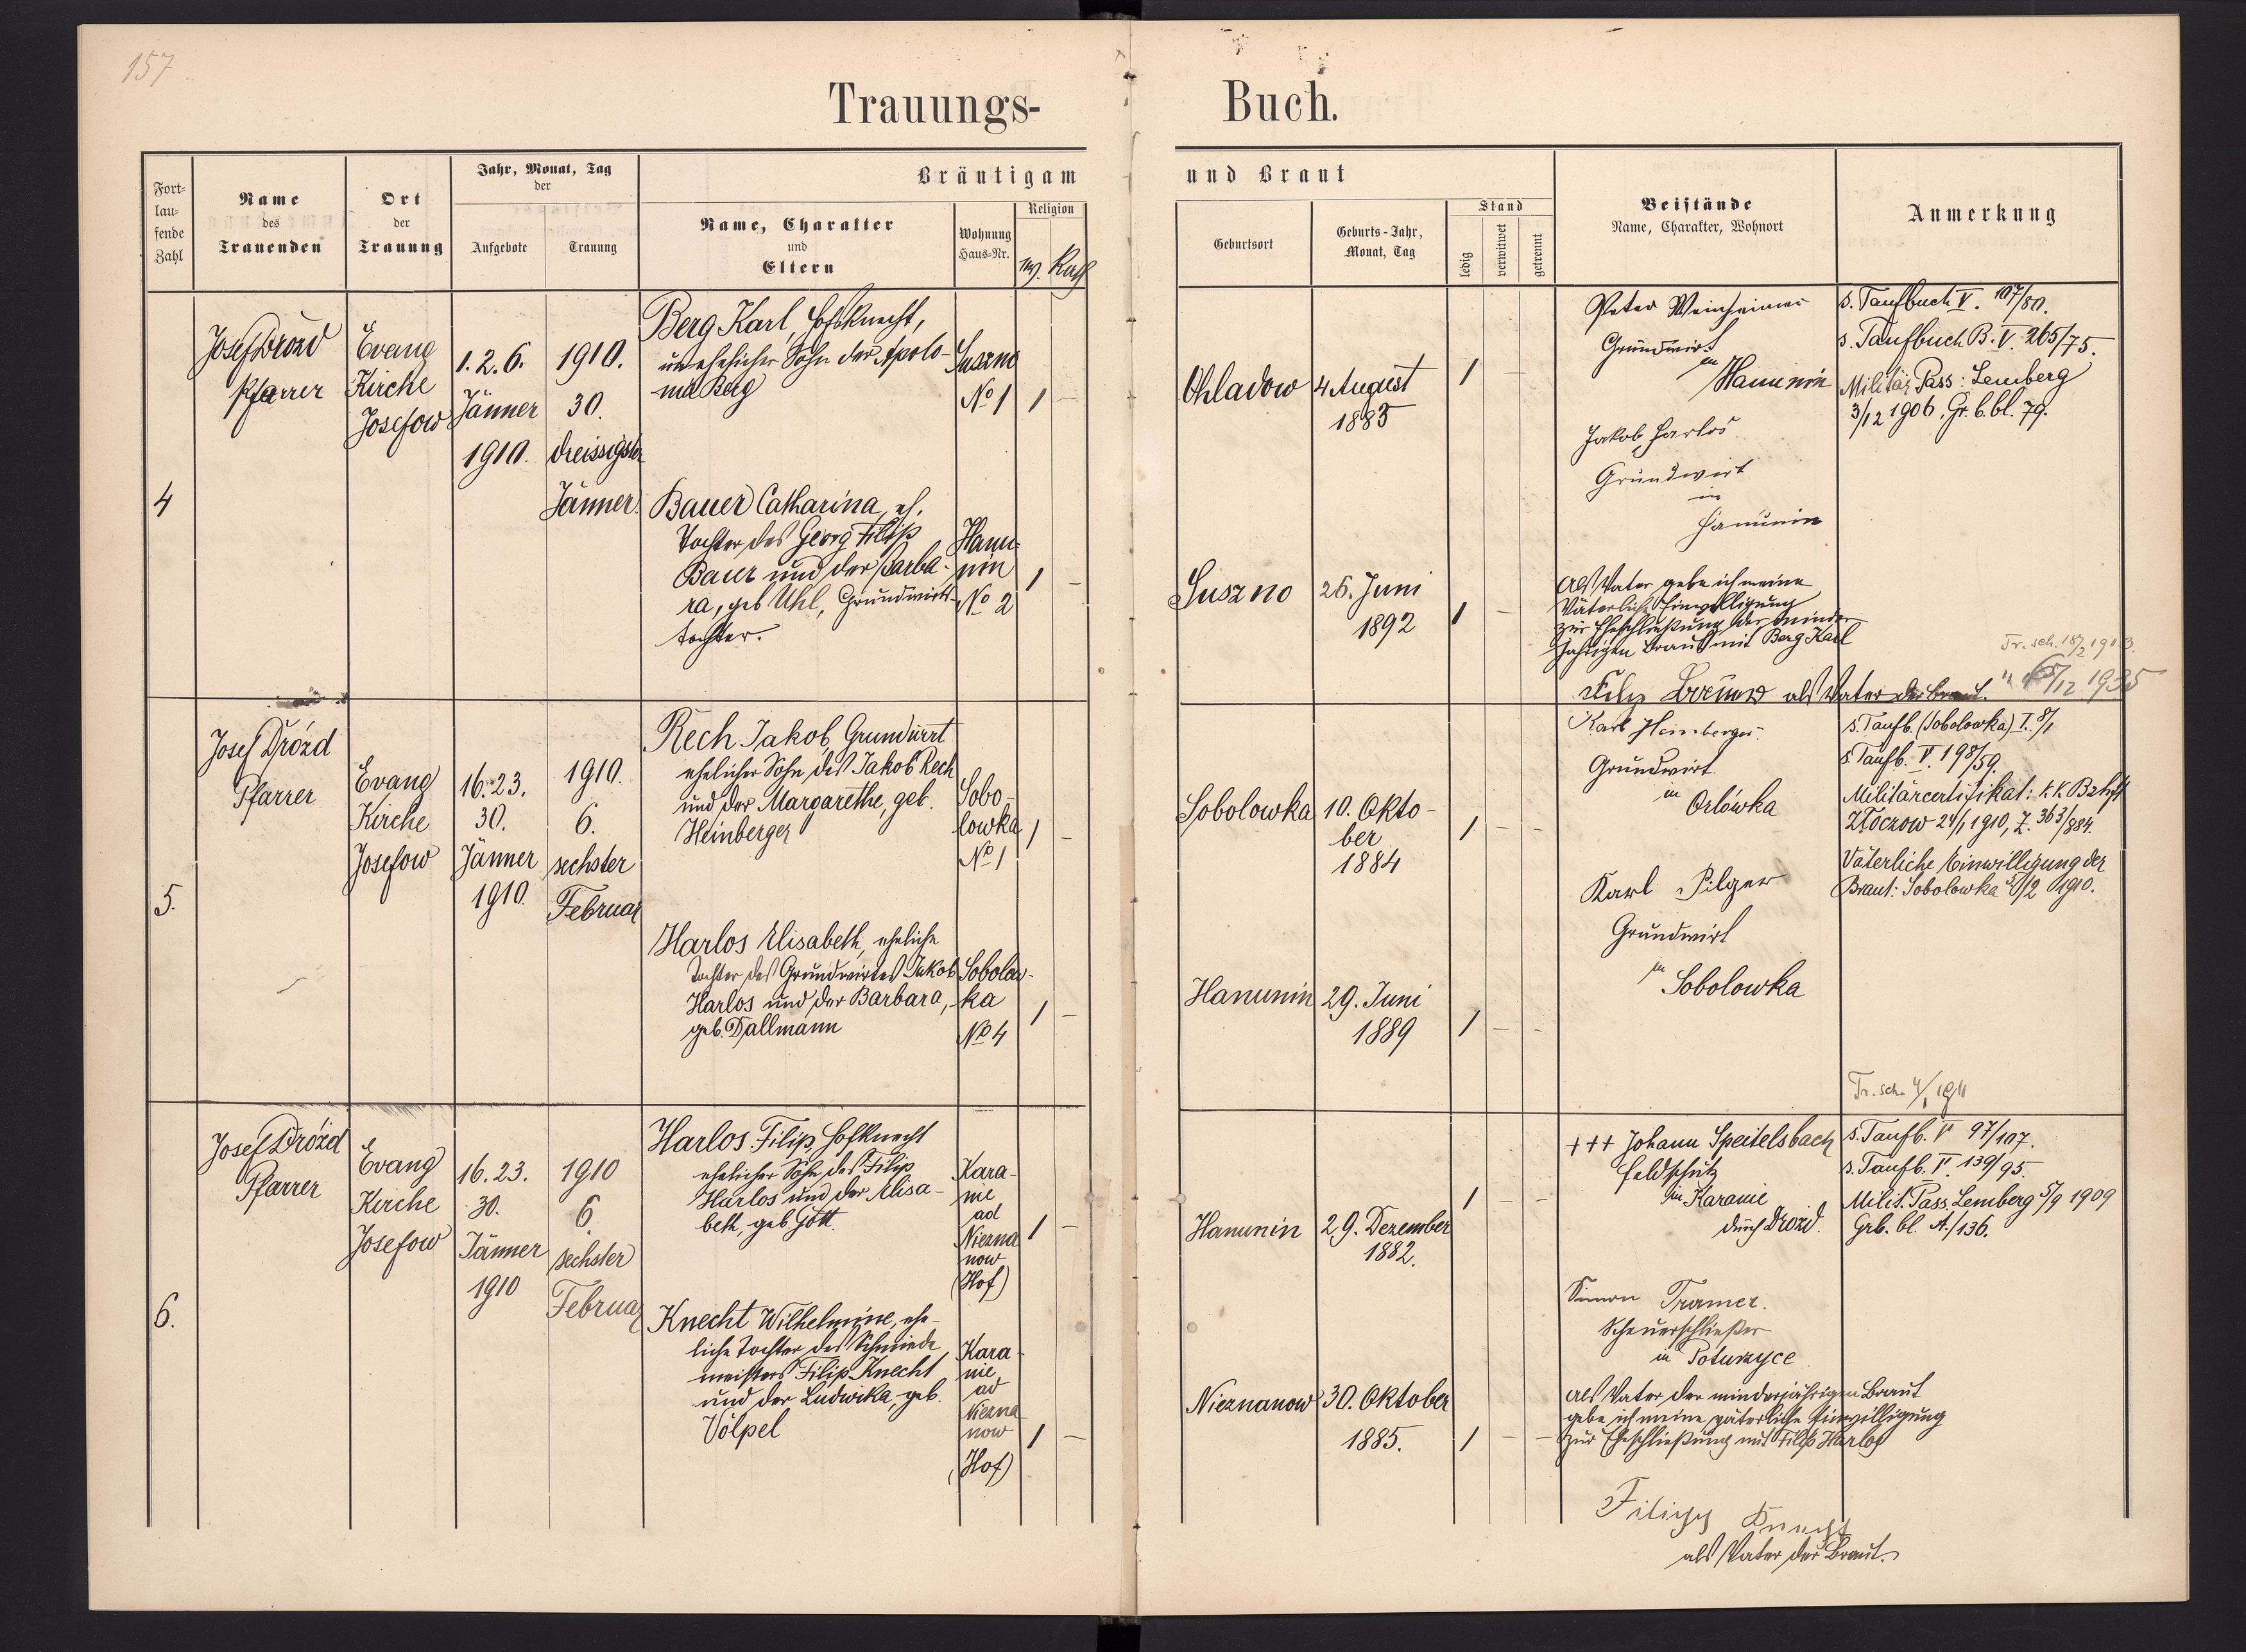 157
Trauungs-
Buch.
Fort-
lau-
fende
Zahl
Name
des
Trauenden
Ort
der
Trauung
Jahr, Monat, Tag
der
Aufgebote
Trauung
Bräutigam
Name, Charakter
und
Eltern
Wohnung
Haus-Nr.
Religion
und Braut
Geburtsort
Geburts-Jahr,
Monat, Tag
Stand
ledig
verwitwet
getrennt
Beistände
Name, Charakter, Wohnort
Anmerkung
4
Josef Drozd
Pfarrer
Evang
Kirche
Josefow
1. 2. 6.
Jänner
1910.
1910.
30.
dreissigster
Jänner.
Berg Karl, Hofsknecht,
unehelicher Sohn der Apolo-
nia Berg
Suszno
No 1
1
Bauer Catharina, eh.
Tochter des Georg Filip
Bauer und der Barba-
ra, geb. Uhl, Grundwirts-
tochter.
Hanu-
nin
No 2
1
Ohladow
4 August
1883
1
Suszno
26. Juni
1892
1
Peter Weinheimer
Grundwirt
in
Hanunin
Jakob Harlos
Grundwirt
in
Hanunin
Als Vater gebe ich meine
Väterliche Einwilligung
zur Eheschließung der minder-
jährigen Braut mit Berg Karl
als Vater der Braut.
s. Taufbuch V. 107/80.
s. Taufbuch B. V. 265/75.
Militär Pass: Lemberg
3/12 1906, Gr. b. bl. 79.
5.
Josef Drózd
Pfarrer
Evang
Kirche
Josefow
16. 23.
30.
Jänner
1910.
1910.
6.
sechster
Februar
Rech Jakob, Grundwirt
ehelicher Sohn des Jakob Rech
und der Margarethe, geb.
Heinberger
Sobo-
lowka
No 1
1
Harlos Elisabeth, eheliche
Tochter des Grundwirtes Jakob
Harlos und der Barbara,
geb. Dallmann
Sobolow-
ka
No 4
1
Sobolowka
10. Okto-
ber
1884
1
Hanunin
29. Juni
1889
1
Karl Heinberger
Grundwirt
in
Orlówka
Karl Pilger
Grundwirt
in
Sobolowka
s. Taufb. (Sobolowka) I. 8/1
s. Taufb. V. 198/59.
Militärcertifikat: k. k. Bzhft
Złoczow 24/1 1910, Z. 363/884.
Väterliche Einwilligung der
Braut: Sobolowka 1910.
Tr. sch. 4/1 1911
6.
Josef Drózd
Pfarrer
Evang
Kirche
Josefow
16. 23.
30.
Jänner
1910
1910
6.
sechster
Februar
Harlos Filip, Hofknecht
ehelicher Sohn des Filip
Harlos und der Elisa-
beth, geb. Gött.
Kara-
nie
ad
Niezna
now
(Hof)
1
Knecht Wilhelmine, ehe-
liche Tochter des Schmiede
meisters Filip Knecht
und der Ludwika, geb.
Völpel
Kara-
nie
ad
Niezna
now
(Hof)
1
Hanunin
29. Dezember
1882.
1
Nieznanow
30. Oktober
1885.
1
+++ Johann Speitelsbach
Feldschütz
in Karanie
durch Drozd.
Simon Tramer.
Scheuerschließer
in Poturzyce
Als Vater der minderjährigen Braut
gebe ich meine väterliche Einwilligung
zur Eheschließung mit Filip Harlos
Filipp Knecht
als Vater der Braut.
s. Taufb. V 97/107.
s. Taufb. V. 139/95.
Milit. Pass. Lemberg 5/9 1909
Grb. bl. A/136.